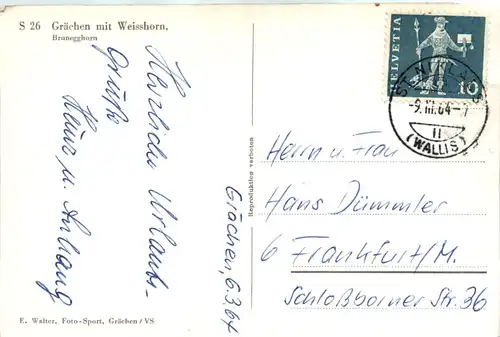 S 26 Grächen mit Weisshorn,
Brunegghorn
Grächen, 6.3.64
Herzliche Urlaubs-
grüße
Heinz u. Anhang
E. Walter, Foto-Sport, Grächen/VS
Reproduktion verboten
HELVETIA
10
ST. NIKLAUS
-9.III.64-7
II
(WALLIS)
Herrn u. Frau
Hans Dümmler
6 Frankfurt/M.
Schloßborner Str. 36